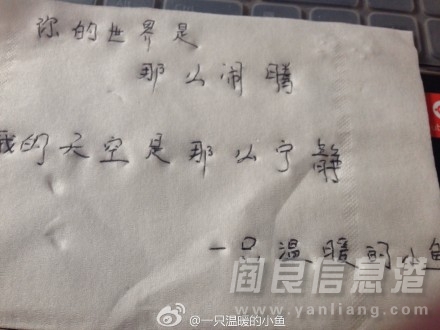 你的世界是
那么闹腾
我的天空是那么宁静
一只温暖的小鱼
阎良信息港
www.yanliang.com
@一只温暖的小鱼